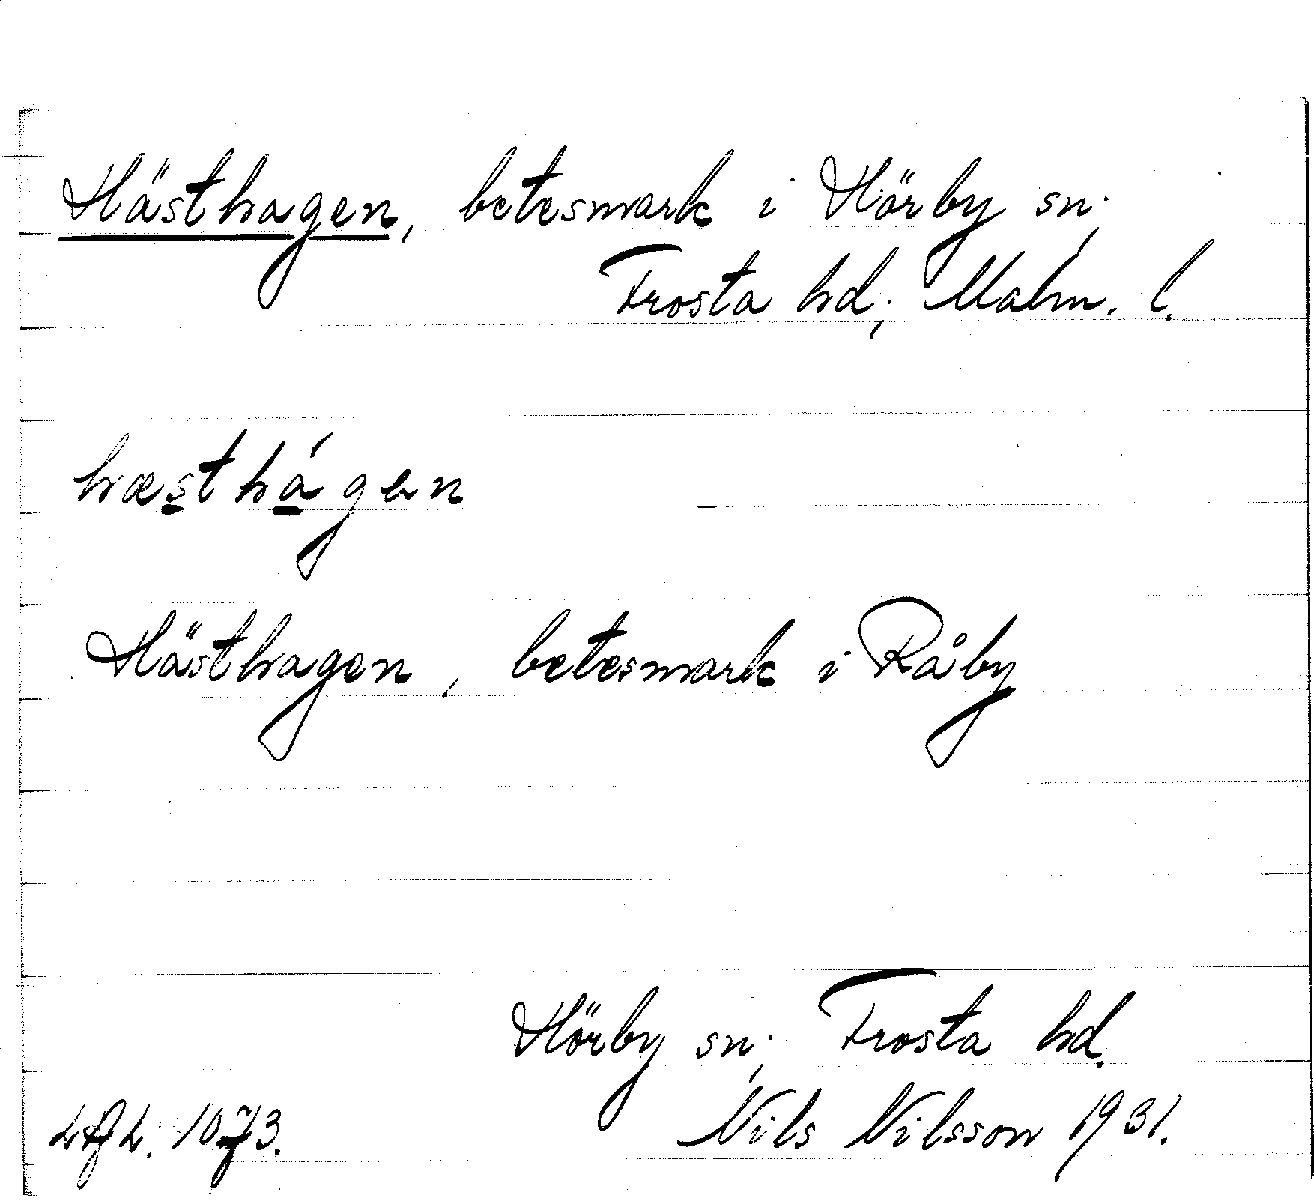 Hästhagen, betesmark i Hörby sn,
Frosta hd, Malm. l.
hæsthágen
Hästhagen, betesmark i Råby
Hörby sn, Frosta hd.
Nils Nilsson 1931.
1073.